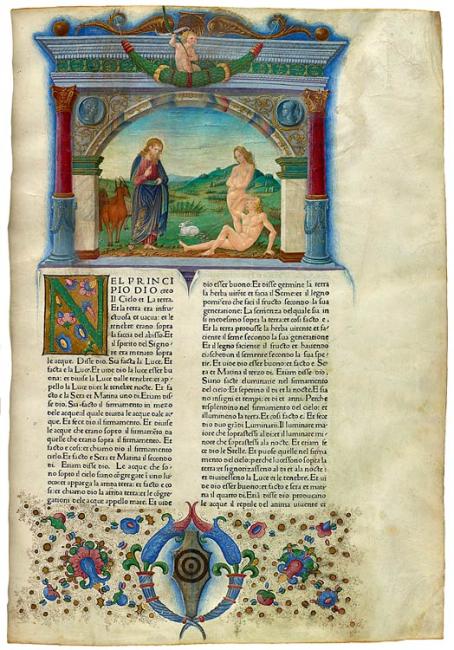 NEL PRINCI
PIO DIO creo
Il Cielo et La terra.
Et la terra era infru
ctuosa et uacua: et le
tenebre erano sopra
la faccia del abisso. Et
il spirito del Signo
re era menato sopra
le acque. Disse dio. Sia facta la Luce. Et
facta e la Luce. Et uide dio la luce esser
buona: et diuise la Luce dale tenebre: et ap
pello la Luce di et le tenebre nocte. Et fa
cto e la Sera et Matina uno di. Etiam disse
dio. Sia facto il firmamento in mezo
dele acque: il quale diuida le acque dale ac
que. Et fece dio il firmamento. Et diuise
le acque che erano sopto il firmamento da
quelle che erano sopra il firmamento. Et
chiamo dio il firmamento
cielo. Et facto e Sera et Matina il secondo
di. Etiam disse dio. Le acque che so
no sopto il cielo siano cógregate i uno luo
co: et apparga la arida terra: et facto e co
si: et chiamo dio la arida terra: et le cógre
gationi dele acque appello mare. Et uide
dio esser buono: Et disse germine la terra
la herba uirete et facia il Seme: et il legno
pomifero che faci il fructo secondo la sua
generatione: La semenza del quale sia in
se medesimo sopra la terra: et cosi facto e.
Et la terra produsse la herba uirente et fa
ciente il seme secondo la sua generatione
Et il legno faciente il fructo et hauendo
ciascheun il semente secondo la sua spe
tie. Et uide dio esser buono: et facto e Se
ra et Matina il terzo di. Etiam disse dio
Siano facte illuminarie nel firmamento
del cielo: Et seperino il di et la nocte: Et si
no insigni et tempi: et di et anni. Perche
resplendino nel firmamento del cielo: et
illumino la terra. Et cosi facto e. Et fece
dio duo gradi Luminarii. Il luminare ma
iore che soprastesse al di: et il luminare mi
nore che soprastesse ala nocte. Et etiam
fece dio le Stelle. Et puose quelle nel firma
mento del cielo: perche lucesseno sopra la
terra: et signorizasseno al di et ala nocte: i
et diuidesseno la Luce et le tenebre. Et ui
de dio esser buono: et facto e sera et mati
na il quarto di. Etiā disse dio producano
le acque il reptile del anima uiuente et